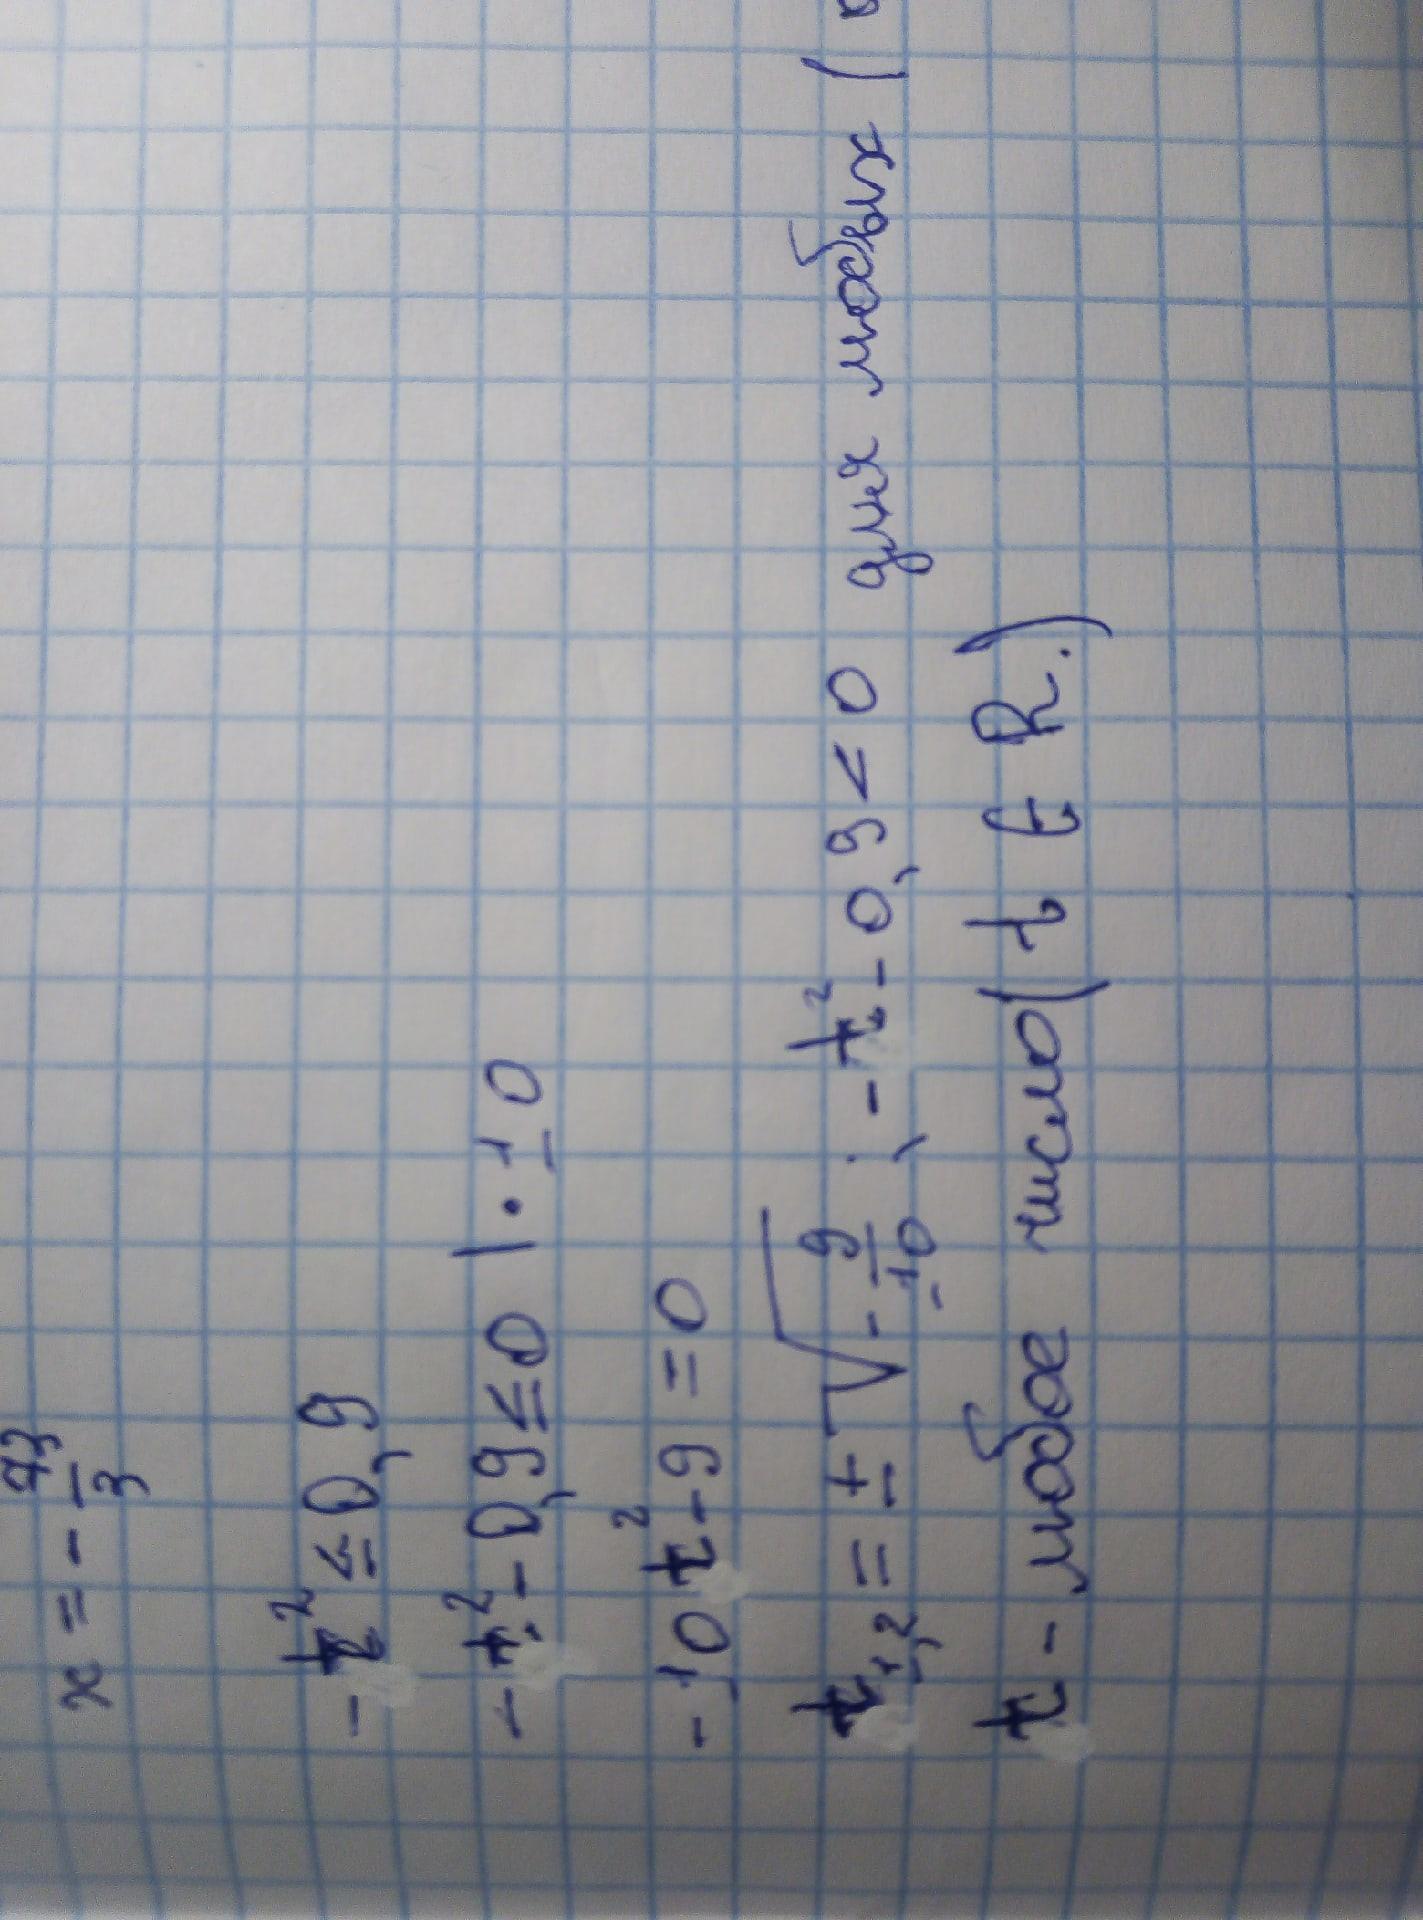 x = - 43/3
-t² ≤ 0,9
-t² - 0,9 ≤ 0 | · 10
-10t² - 9 = 0
t₁,₂ = ± √-9/10 ; -t² - 0,9 < 0 для любых (
t - любое число (t ∈ R.)